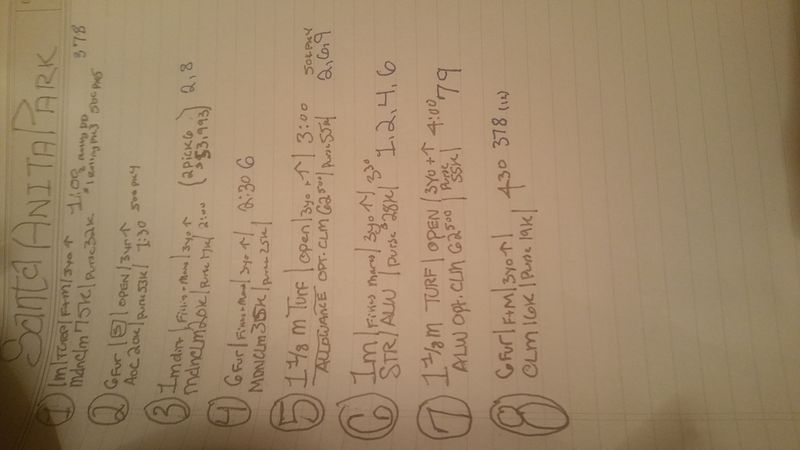 Santa ANITA PARK
1 1m|TURF| F+M|3yo↑ 1:00 2 rolling DD 378
MdnClm 75K|Purse 32K $1 rolling PK3 50¢ PK5
2 6 Fur |S| OPEN| 3yr↑
AOC 20K|Purse 53K| 1:30 50¢ PK4
3 1m dirt| Fillies+Mares| 3yo↑ (2 PICK 6
MdnClm 20K|Purse 17K| 2:00 $53,993) 2,8
4 6 Fur| Fillies+Mares| 3yo↑|
MDNCLM 35K|Purse 25K| 2:30 6
5 1 1/8 m Turf | OPEN| 3yo+↑| 3:00 50¢ PK4
ALLOWANCE OPT. CLM 62500 |Purse 55K| 2,6,9
6 1m| Fillies Mares| 3yo↑| 330
STR/ALW |Purse 28K| 1,2,4,6
7 1 1/8 m TURF | OPEN |3yo+↑| 4:00
ALW OPT. CLM 62500 |Purse 55K| 79
8 6 Fur| F+M| 3yo↑|
CLM 16K |Purse 19K| 430 378 (12)